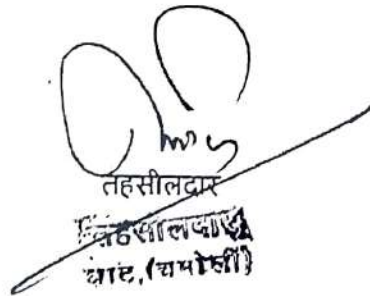 तहसीलदार
तहसीलदार
घाट, (चमोली)